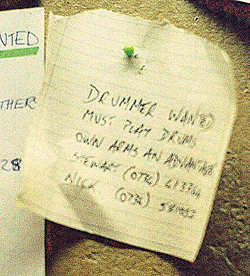 NTED
THER
28
DRUMMER WANTED
MUST PLAY DRUMS
OWN ARMS AN ADVANTAGE
STEWART (0786)
NICK (0786)